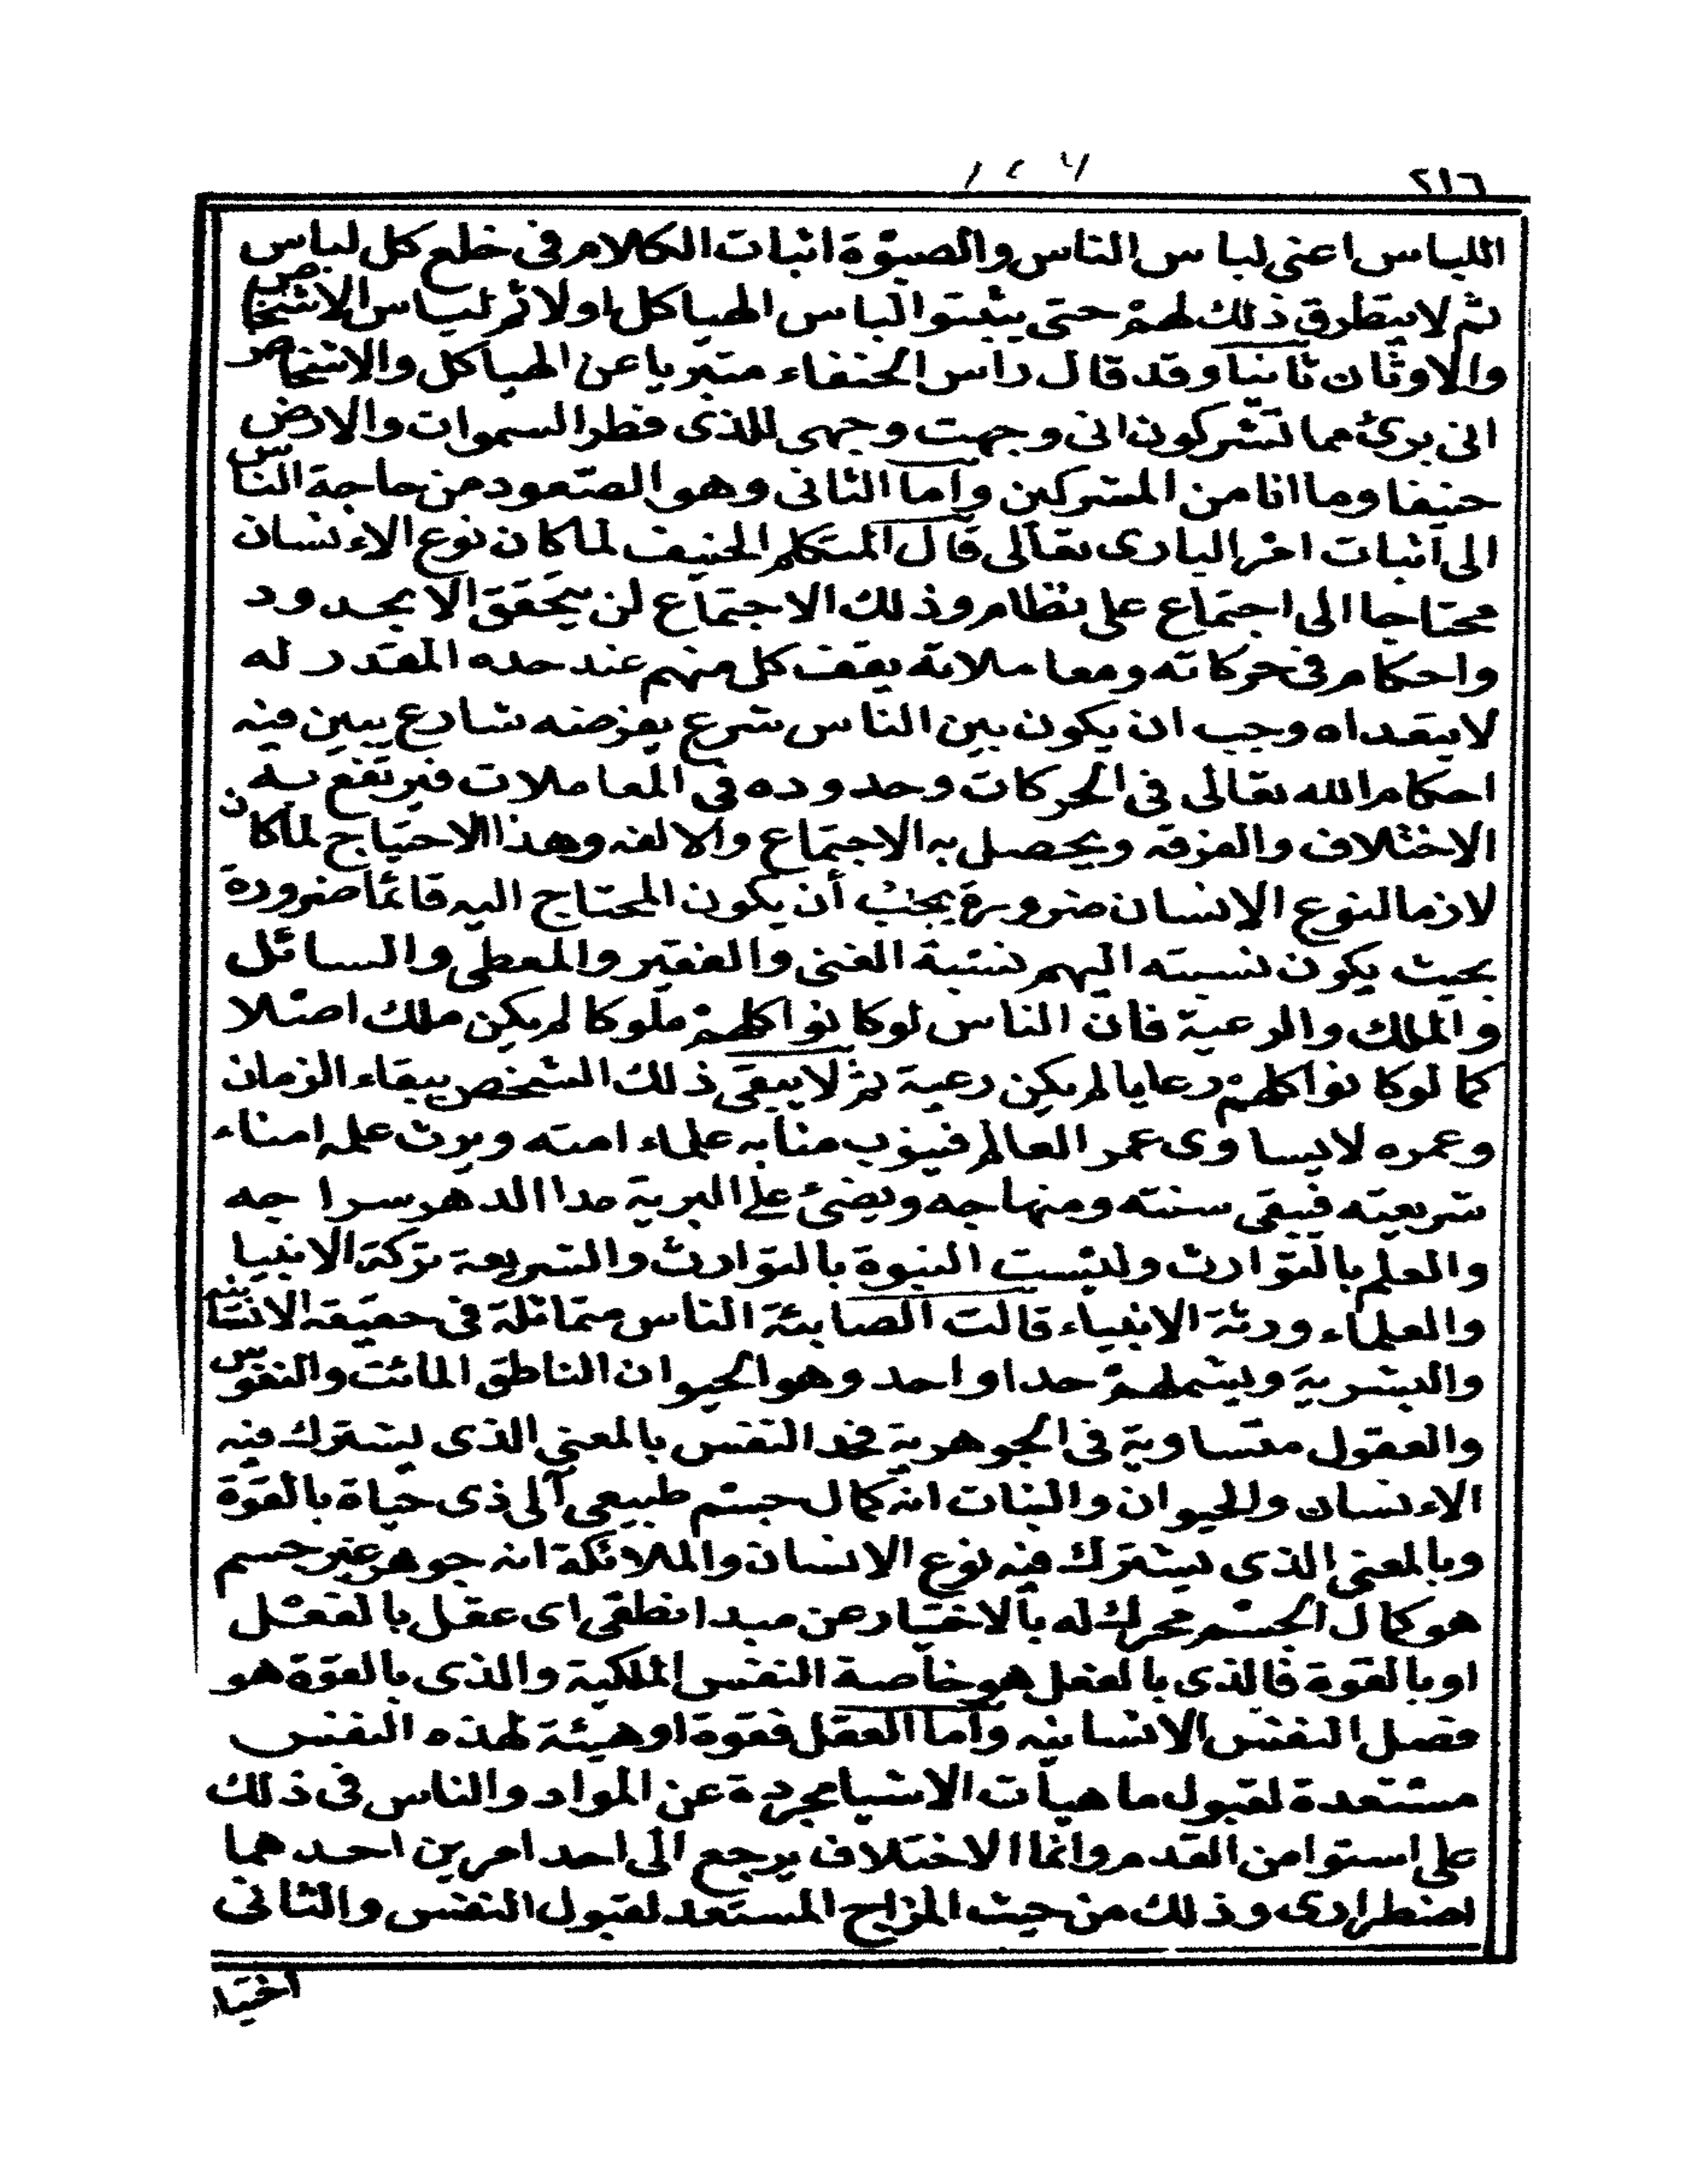 ١٤٦ ٢١٦
اللباس اعنى لباس الناس والصبوّة اثبات الكلام فى خلع كل لباس
ثم لا يتطرق ذلك لهم حتى يثبتوا لباس الهياكل اولا ثم لباس الاشخاص
والاوثان ثانيا وقد قال راس الحنفاء متبريا عن الهياكل والاشخاص
انى برئ مما تشركون انى وجهت وجهى للذى فطر السموات والارض
حنيفا وما انا من المشركين واما الثانى وهو الصعود من حاجة الناس
الى اثبات امر البارى تعالى قال المتكلم الحنيف لما كان نوع الاءنسان
محتاجا الى اجتماع على نظام وذلك الاجتماع لن يتحقق الا بحدود
واحكام فى حركاته ومعاملاته يقف كل منهم عند حده المقدر له
لا يتعداه وجب ان يكون بين الناس شرع يفرضه شارع يبين فيه
احكام الله تعالى فى الحركات وحدوده فى المعاملات فيرتفع به
الاختلاف والفرقه ويحصل به الاجتماع والالفه وهذا الاحتياج لما كان
لازما لنوع الانسان ضرورة يجب أن يكون المحتاج اليه قائما ضرورة
بحيث يكون نسبته اليهم نسبة الغنى والفقير والمعطى والسائل
والملك والرعية فان الناس لو كانوا كلهم ملوكا لم يكن ملك اصلا
كما لو كانوا كلهم رعايا لم يكن رعية ثم لا يبقى ذلك الشخص ببقاء الزمان
وعمره لا يساوى عمر العالم فينوب منابه علماء امته ويرث علمه امناء
شريعته فيبقى سنته ومنهاجه ويضئ على البرية مدا الدهر سراجه
والعلم بالتوارث وليست النبوة بالتوارث والشريعة تركة الانبيا
والعلماء ورثة الانبياء قالت الصابئة الناس متماثلة فى حقيقه الانسانيه
والبشرية ويشملهم حدا واحد وهو الحيوان الناطق المائت والنفوس
والعقول متساوية فى الجوهرية فحد النفس بالمعنى الذى يشترك فيه
الاءنسان والحيوان والنبات انه كمال جسم طبيعى آلى ذى حياة بالقوة
وبالمعنى الذى يشترك فيه نوع الانسان والملائكة انه جوهر غير جسم
هو كمال الجسم محرك له بالاختيار عن مبدا نطقى اى عقل بالفعل
او بالقوة فالذى بالفعل هو خاصة النفس الملكية والذى بالقوة هو
فصل النفس الانسانيه واما العقل فقوة او هيئة لهذه النفس
مستعدة لقبول ماهيات الاشيا مجردة عن المواد والناس فى ذلك
على استوا من القدم وانما الاختلاف يرجع الى احد امرين احدهما
اضطرارى وذلك من حيث المزاج المستعد لقبول النفس والثانى
اختيا